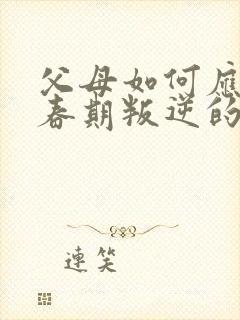 父母如何应
春期叛逆的
连笑